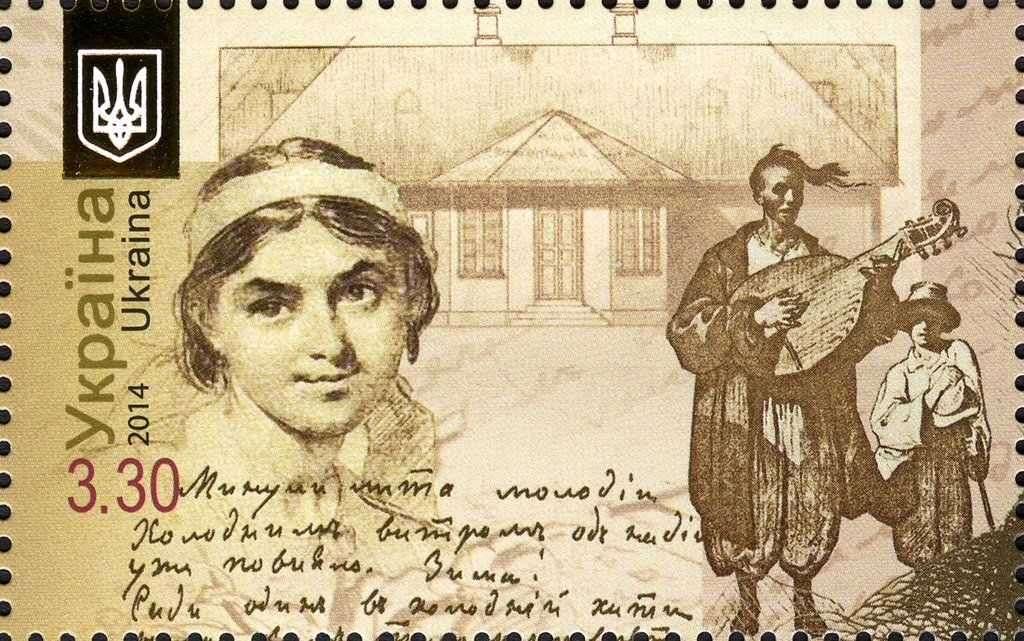 Україна
Ukraina
2014
3.30
Минули літа молодії
Холоднимъ витромъ одъ надіи
уже повияло. Зима!
Сиди одинъ въ холодній хати